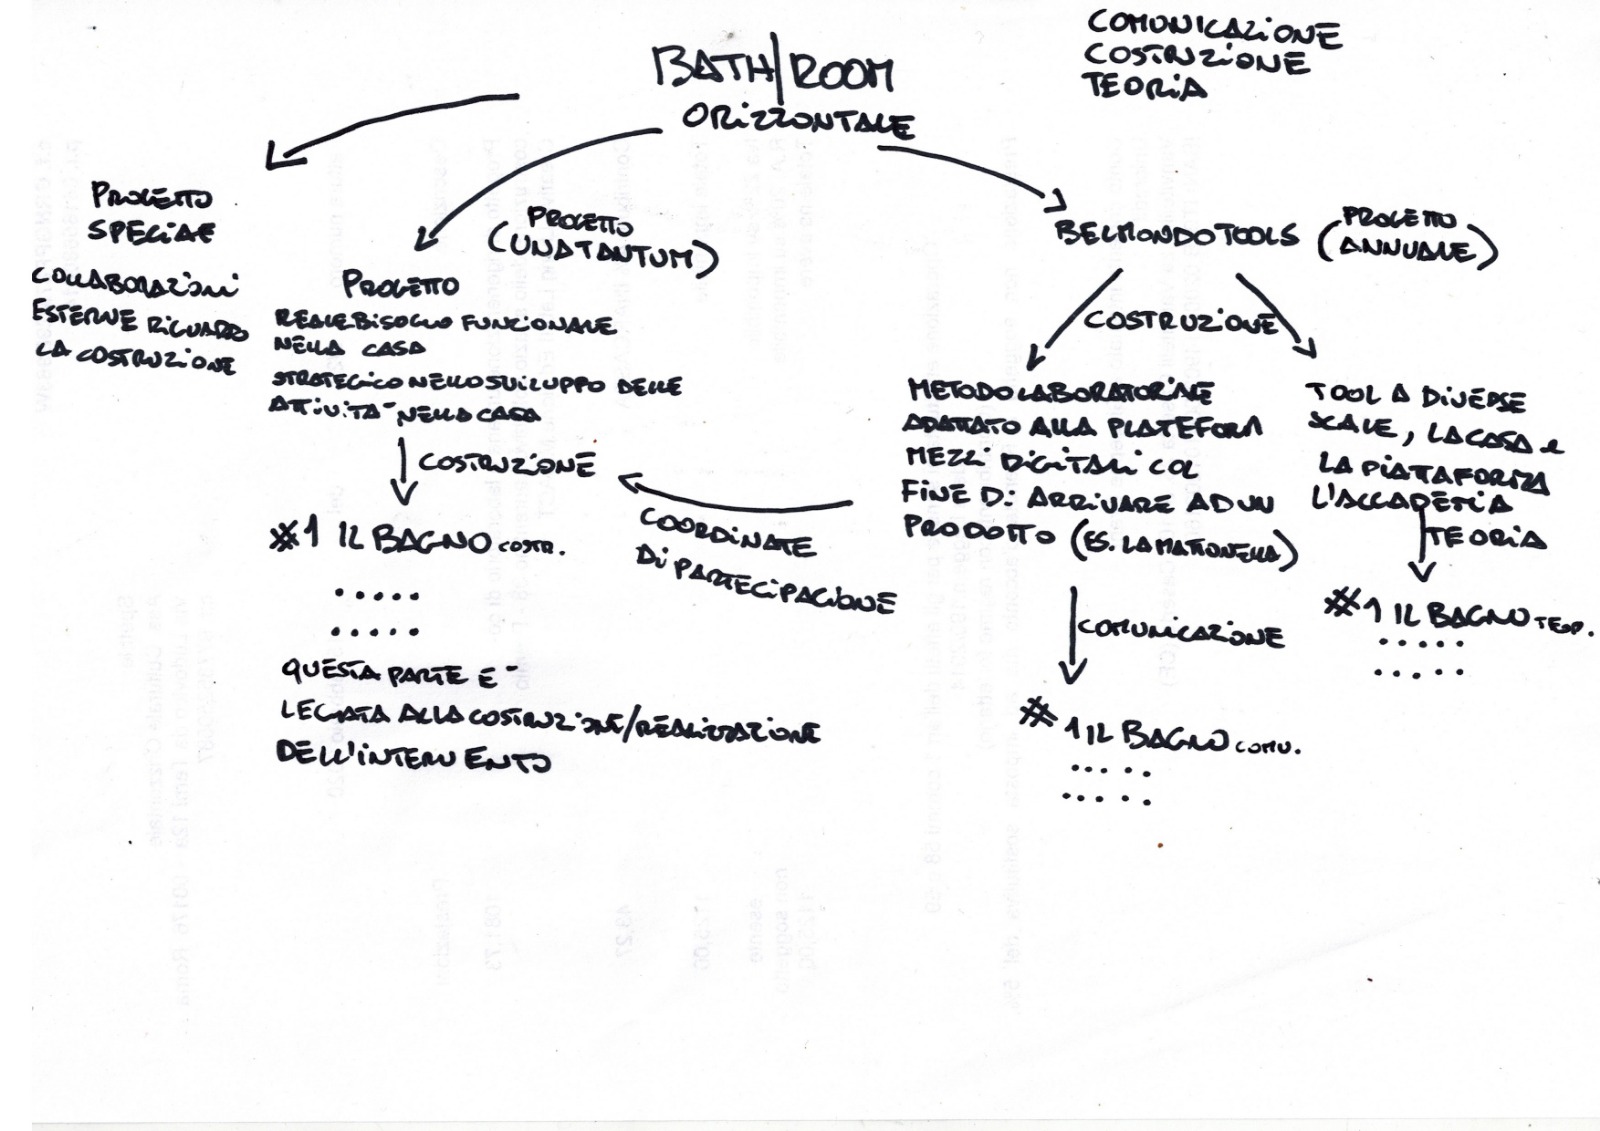 COMUNICAZIONE
COSTRUZIONE
TEORIA
BATH/ROOM
ORIZZONTALE
PROGETTO
SPECIALE
COLLABORAZIONI
ESTERNE RIGUARDO
LA COSTRUZIONE
PROGETTO
(UNATANTUM)
PROGETTO
REALE BISOGNO FUNZIONALE
NELLA CASA
STRATEGICO NELLO SVILUPPO DELLE
ATTIVITA' NELLA CASA
COSTRUZIONE
#1 IL BAGNO COSTR.
.....
.....
QUESTA PARTE E'
LEGATA ALLA COSTRUZIONE/REALIZZAZIONE
DELL'INTERVENTO
COORDINATE
DI PARTECIPAZIONE
BELMONDOTOOLS
PROGETTO
(ANNUALE)
COSTRUZIONE
METODO LABORATORIALE
ADATTATO ALLA PLATEFORM
MEZZI DIGITALI COL
FINE DI ARRIVARE AD UN
PRODOTTO (ES. LA MATTONELLA)
COMUNICAZIONE
#1 IL BAGNO COMU.
.....
.....
TOOL A DIVERSE
SCALE, LA CASA e
LA PIATAFORMA
L'ACCADEMIA
TEORIA
#1 IL BAGNO TEOR.
.....
.....